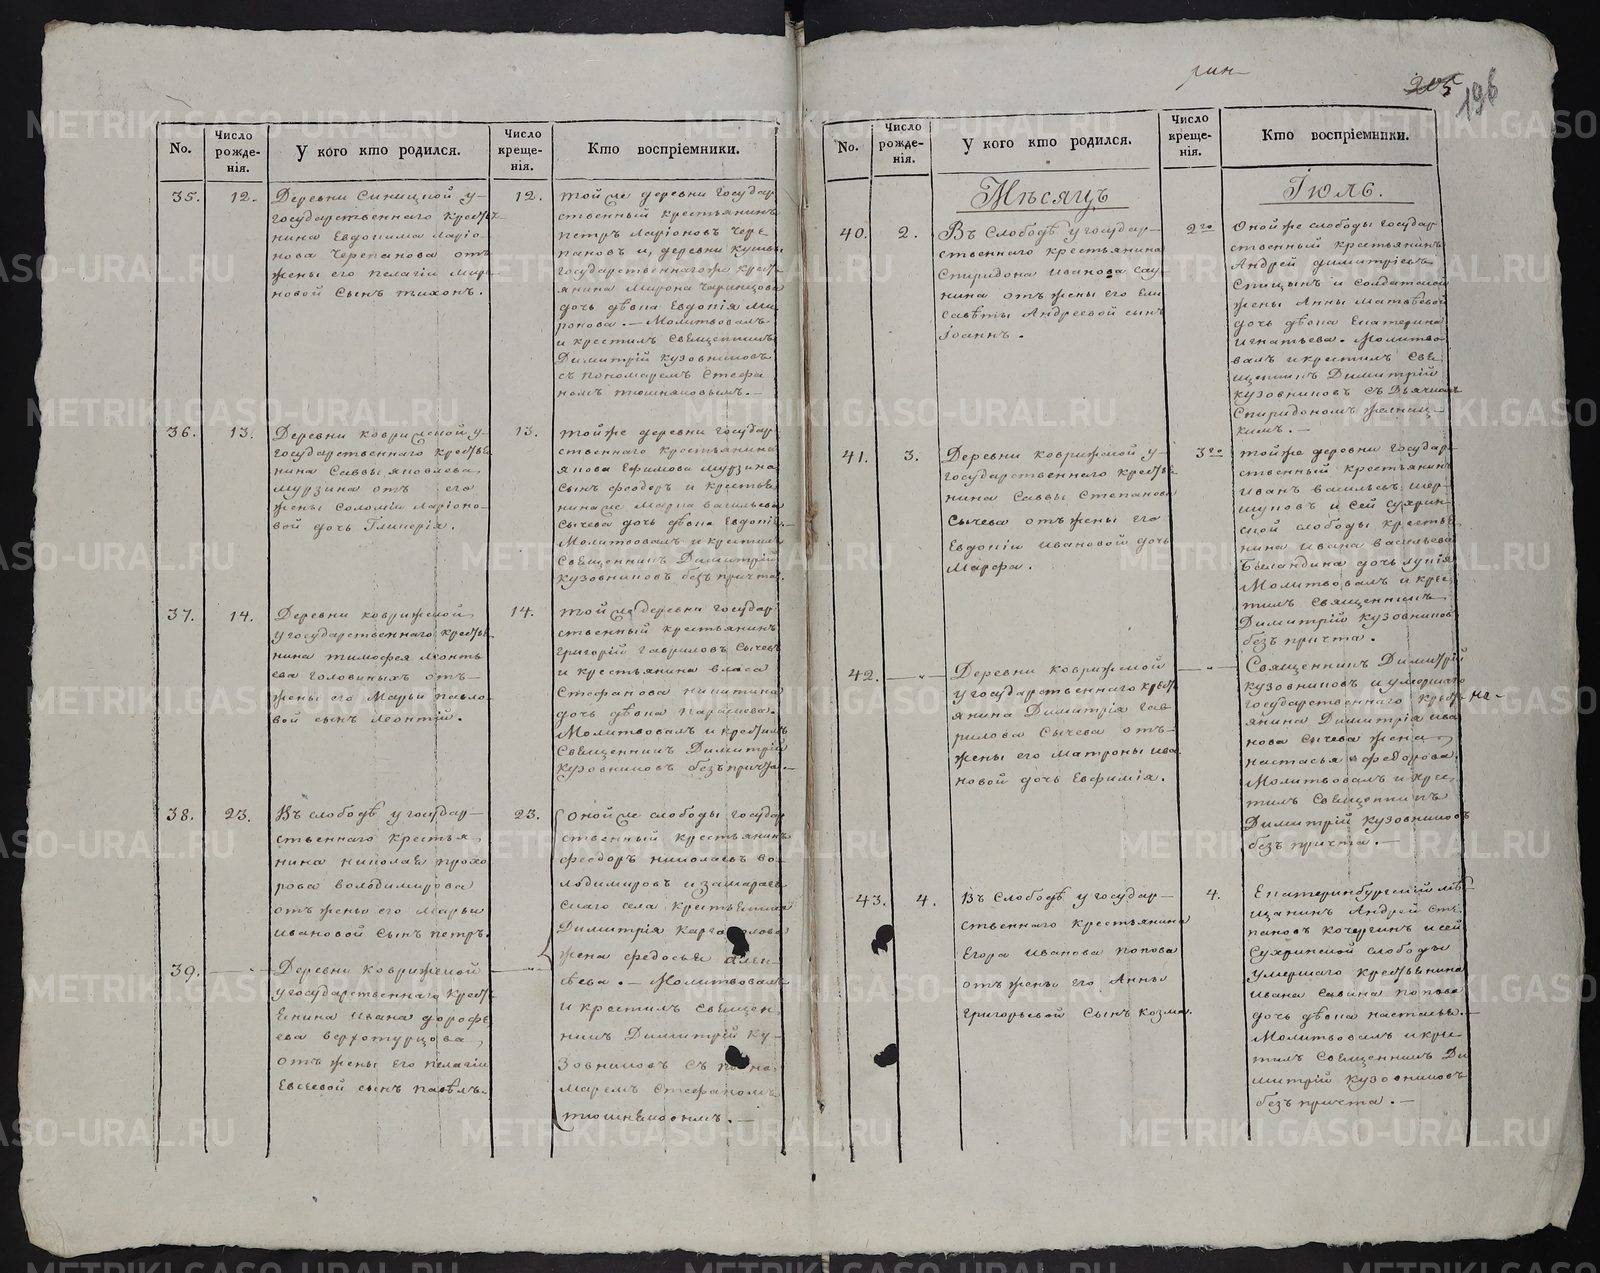 рин
205
196
No.
Число рожде-нія.
У кого кто родился.
Число креще-нія.
Кто воспріемники.
35.
12.
Деревни Синицкой у
государственнаго кресть
нина Евдокима Ларіо
нова Черепанова отъ
жены его Пелагіи Миро
новой сынъ Тихонъ.
12.
Тойже деревни государ
ственный крестьянинъ
Петръ Ларіоновъ Чере
пановъ и, деревни
государственнагоже кресть
янина Мирона
дочь дѣвка Евдокія Ми
ронова. — Молитвовалъ
и крестилъ Священникъ
Димитрій Кузовниковъ
съ пономаремъ Стефа
номъ Тюшняковымъ. —
36.
13.
Деревни Коврижской у
государственнаго крестья
нина Саввы Яковлева
Мурзина отъ его
жены Соломіи Ларіоно
вой дочь Гликерія.
13.
Тойже деревни государ
ственнаго крестьянина
Якова Ефимова Мурзина
сынъ Феодоръ и крестья
нинаже Марка Васильева
Сычева дочь дѣвка Евдокія
Молитвовалъ и крестилъ
Священникъ Димитрій
Кузовниковъ безъ причта.
37.
14.
Деревни Коврижской
у государственнаго крестья
нина Тимофея Леонть
ева Головиныхъ отъ
жены его Марьи Павло
вой сынъ Леонтій.
14.
Тойже деревни государ
ственный крестьянинъ
Григорій Гавриловъ Сычевъ
и крестьянина Власа
Стефанова Никитина
дочь дѣвка Параскева.
Молитвовалъ и крестилъ
Священникъ Димитрій
Кузовниковъ безъ причта. —
38.
23.
Въ слободѣ у государ
ственнаго крестья
нина Николая Прохо
рова Володимирова
отъ жены его Марьи
Ивановой сынъ Петръ.
23.
Онойже слободы государ
ственный крестьянинъ
Феодоръ Николаевъ Во
лодимировъ и
села крестьянина
Димитрія
жена Федосья Алек
ѣева. — Молитвовалъ
и крестилъ Священ
никъ Димитрій Ку
зовниковъ съ поно
маремъ Стефаномъ
Тюшняковымъ. —
39.
Деревни Коврижской
у государственнаго кресть
янина Ивана Дорофѣ
ева Верхотурцова
отъ жены его Пелагіи
Евсеевой сынъ Павелъ.
No.
Число рожде-нія.
У кого кто родился.
Число креще-нія.
Кто воспріемники.
Мѣсяцъ
Іюль.
40.
2.
Въ Слободѣ у государ
ственнаго крестьянина
Спиридона Иванова Сау
нина отъ жены его Ели
саветы Андреевой сынъ
Іоаннъ.
2го
Онойже слободы государ
ственный крестьянинъ
Андрей Димитріевъ
Спицынъ и солдатской
жены Анны Матвѣевой
дочь дѣвка Екатерина
Игнатьева. Молитво
валъ и крестилъ Свя
щенникъ Димитрій
Кузовниковъ съ Дьячкомъ
Спиридономъ
кимъ. —
41.
3.
Деревни Коврижской у
государственнаго крестья
нина Саввы Степанова
Сычева отъ жены его
Евдокіи Ивановой дочь
Марфа.
3го
Тойже деревни государ
ственный крестьянинъ
Иванъ Васильевъ Шер
шуковъ и сей Сухрин
ской слободы крестья
нина Ивана Васильева
Баландина дочь Лукія
Молитвовалъ и крес
тилъ Священникъ
Димитрій Кузовниковъ
безъ причта.
42.
Деревни Коврижской
у государственнаго кресть
янина Димитрія Гав
рилова Сычева отъ
жены его Матроны Ива
новой дочь Евфимія.
Священникъ Димитрій
Кузовниковъ и умершаго
государственнаго кресть
янина Димитрія Ива
нова Сычева жена
Настасья Федорова.
Молитвовалъ и крес
тилъ Священникъ
Димитрій Кузовниковъ
безъ причта. —
43.
4.
Въ Слободѣ у государ
ственнаго крестьянина
Егора Иванова Попова
отъ жены его Анны
Григорьевой сынъ Козма.
4.
Екатеринбургскій мѣ
щанинъ Андрей Сте
пановъ Кочергинъ и сей
Сухринской слободы
умершаго крестьянина
Ивана Савина Попова
дочь дѣвка Настасья. —
Молитвовалъ и кре
стилъ Священникъ Ди
митрій Кузовниковъ
безъ причта. —
METRIKI.GASO-URAL.RU